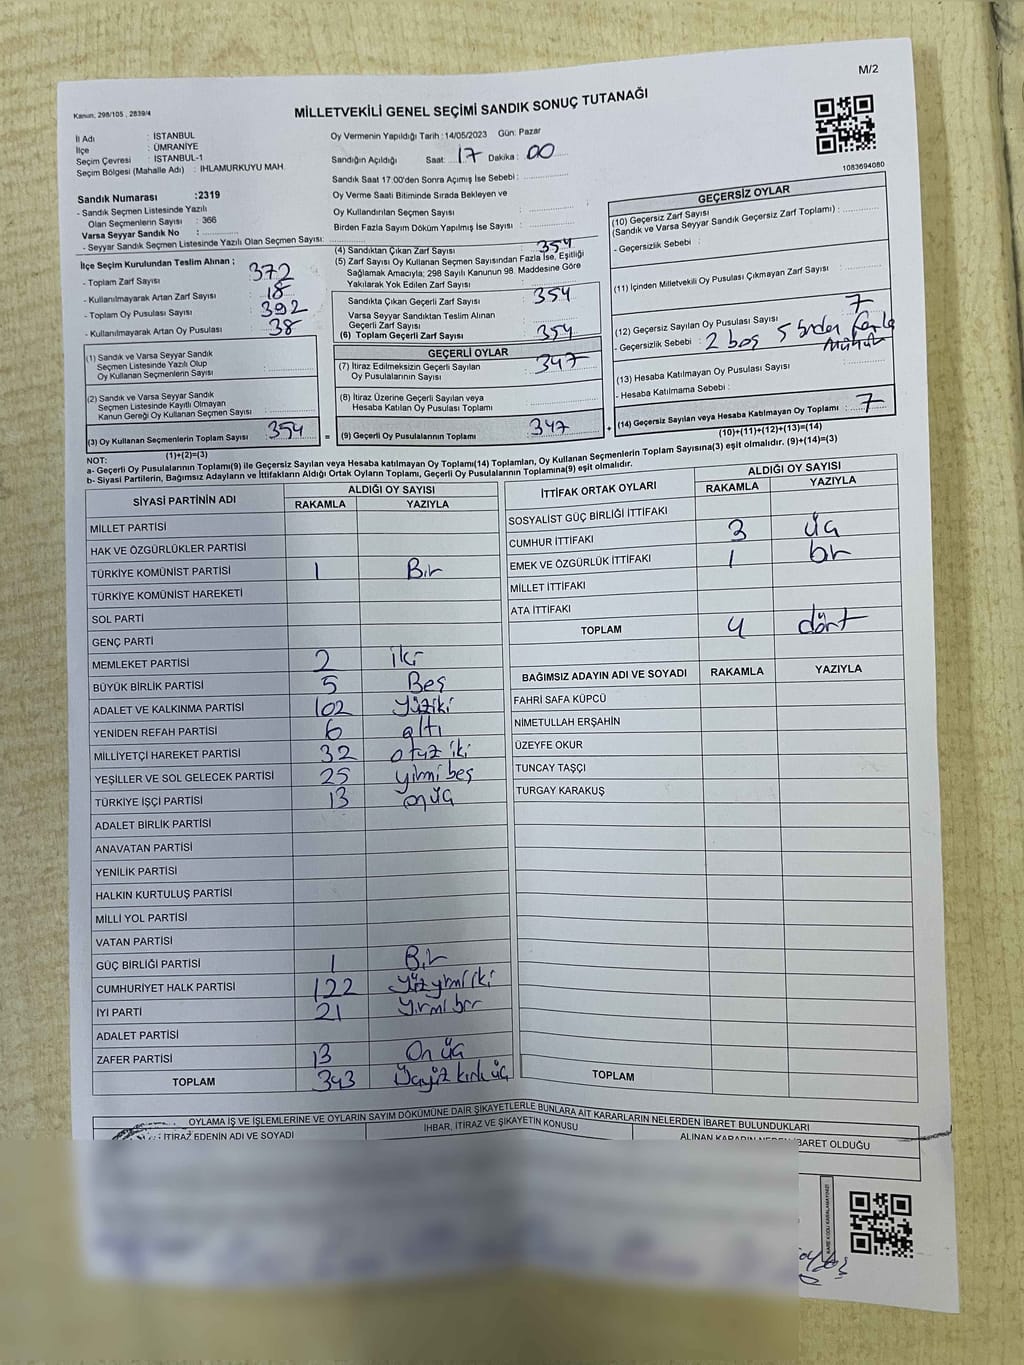 M/2
Kanun, 298/105 , 2839/4
MİLLETVEKİLİ GENEL SEÇİMİ SANDIK SONUÇ TUTANAĞI
1083694080
İl Adı : İSTANBUL
İlçe : ÜMRANİYE
Seçim Çevresi : İSTANBUL-1
Seçim Bölgesi (Mahalle Adı) : IHLAMURKUYU MAH.
Sandık Numarası :2319
- Sandık Seçmen Listesinde Yazılı
Olan Seçmenlerin Sayısı : 366
Varsa Seyyar Sandık No :
- Seyyar Sandık Seçmen Listesinde Yazılı Olan Seçmen Sayısı:
Oy Vermenin Yapıldığı Tarih : 14/05/2023 Gün: Pazar
Sandığın Açıldığı Saat: 17 Dakika : 00
Sandık Saat 17.00'den Sonra Açımış İse Sebebi :
Oy Verme Saati Bitiminde Sırada Bekleyen ve
Oy Kullandırılan Seçmen Sayısı :
Birden Fazla Sayım Döküm Yapılmış İse Sayısı :
İlçe Seçim Kurulundan Teslim Alınan ;
- Toplam Zarf Sayısı : 372
- Kullanılmayarak Artan Zarf Sayısı : 18
- Toplam Oy Pusulası Sayısı : 392
- Kullanılmayarak Artan Oy Pusulası : 38
(1) Sandık ve Varsa Seyyar Sandık
Seçmen Listesinde Yazılı Olup
Oy Kullanan Seçmenlerin Sayısı :
(2) Sandık ve Varsa Seyyar Sandık
Seçmen Listesinde Kayıtlı Olmayan
Kanun Gereği Oy Kullanan Seçmen Sayısı :
(3) Oy Kullanan Seçmenlerin Toplam Sayısı 354
(1)+(2)=(3)
(4) Sandıktan Çıkan Zarf Sayısı : 354
(5) Zarf Sayısı Oy Kullanan Seçmen Sayısından Fazla İse, Eşitliği
Sağlamak Amacıyla; 298 Sayılı Kanunun 98. Maddesine Göre
Yakılarak Yok Edilen Zarf Sayısı :
Sandıkta Çıkan Geçerli Zarf Sayısı : 354
Varsa Seyyar Sandıktan Teslim Alınan
Geçerli Zarf Sayısı :
(6) Toplam Geçerli Zarf Sayısı : 354
GEÇERLİ OYLAR
(7) İtiraz Edilmeksizin Geçerli Sayılan
Oy Pusulasının Sayısı : 347
(8) İtiraz Üzerine Geçerli Sayılan veya
Hesaba Katılan Oy Pusulası Toplamı :
= (9) Geçerli Oy Pusulalarının Toplamı : 347
GEÇERSİZ OYLAR
(10) Geçersiz Zarf Sayısı
(Sandık ve Varsa Seyyar Sandık Geçersiz Zarf Toplamı) :
- Geçersizlik Sebebi :
(11) İçinden Milletvekili Oy Pusulası Çıkmayan Zarf Sayısı :
(12) Geçersiz Sayılan Oy Pusulası Sayısı : 7
- Geçersizlik Sebebi : 2 boş 5 birden fazla
Mühür
(13) Hesaba Katılmayan Oy Pusulası Sayısı :
- Hesaba Katılmama Sebebi :
+ (14) Geçersiz Sayılan veya Hesaba Katılmayan Oy Toplamı : 7
(10)+(11)+(12)+(13)=(14)
NOT:
a- Geçerli Oy Pusulalarının Toplamı(9) ile Geçersiz Sayılan veya Hesaba katılmayan Oy Toplamı(14) Toplamları, Oy Kullanan Seçmenlerin Toplam Sayısına(3) eşit olmalıdır. (9)+(14)=(3)
b- Siyasi Partilerin, Bağımsız Adayların ve İttifakların Aldığı Ortak Oyların Toplamı, Geçerli Oy Pusulalarının Toplamına(9) eşit olmalıdır.
SİYASİ PARTİNİN ADI ALDIĞI OY SAYISI
RAKAMLA YAZIYLA
MİLLET PARTİSİ
HAK VE ÖZGÜRLÜKLER PARTİSİ
TÜRKİYE KOMÜNİST PARTİSİ 1 Bir
TÜRKİYE KOMÜNİST HAREKETİ
SOL PARTİ
GENÇ PARTİ
MEMLEKET PARTİSİ 2 iki
BÜYÜK BİRLİK PARTİSİ 5 Beş
ADALET VE KALKINMA PARTİSİ 102 Yüziki
YENİDEN REFAH PARTİSİ 6 altı
MİLLİYETÇİ HAREKET PARTİSİ 32 otuz iki
YEŞİLLER VE SOL GELECEK PARTİSİ 25 yirmi beş
TÜRKİYE İŞÇİ PARTİSİ 13 on üç
ADALET BİRLİK PARTİSİ
ANAVATAN PARTİSİ
YENİLİK PARTİSİ
HALKIN KURTULUŞ PARTİSİ
MİLLİ YOL PARTİSİ
VATAN PARTİSİ
GÜÇ BİRLİĞİ PARTİSİ 1 Bir
CUMHURİYET HALK PARTİSİ 122 Yüzyirmi iki
İYİ PARTİ 21 Yirmi bir
ADALET PARTİSİ
ZAFER PARTİSİ 13 On üç
TOPLAM 343 Üçyüz kırk üç
İTTİFAK ORTAK OYLARI ALDIĞI OY SAYISI
RAKAMLA YAZIYLA
SOSYALİST GÜÇ BİRLİĞİ İTTİFAKI
CUMHUR İTTİFAKI 3 üç
EMEK VE ÖZGÜRLÜK İTTİFAKI 1 bir
MİLLET İTTİFAKI
ATA İTTİFAKI
TOPLAM 4 dört
BAĞIMSIZ ADAYIN ADI VE SOYADI RAKAMLA YAZIYLA
FAHRİ SAFA KÜPCÜ
NİMETULLAH ERŞAHİN
ÜZEYFE OKUR
TUNCAY TAŞÇI
TURGAY KARAKUŞ
TOPLAM
OYLAMA İŞ VE İŞLEMLERİNE VE OYLARIN SAYIM DÖKÜMÜNE DAİR ŞİKAYETLERLE BUNLARA AİT KARARLARIN NELERDEN İBARET BULUNDUKLARI
İTİRAZ EDENİN ADI VE SOYADI İHBAR, İTİRAZ VE ŞİKAYETİN KONUSU ALINAN KARARIN NEDEN İBARET OLDUĞU
KARE KODU KARALAMAYINIZ!